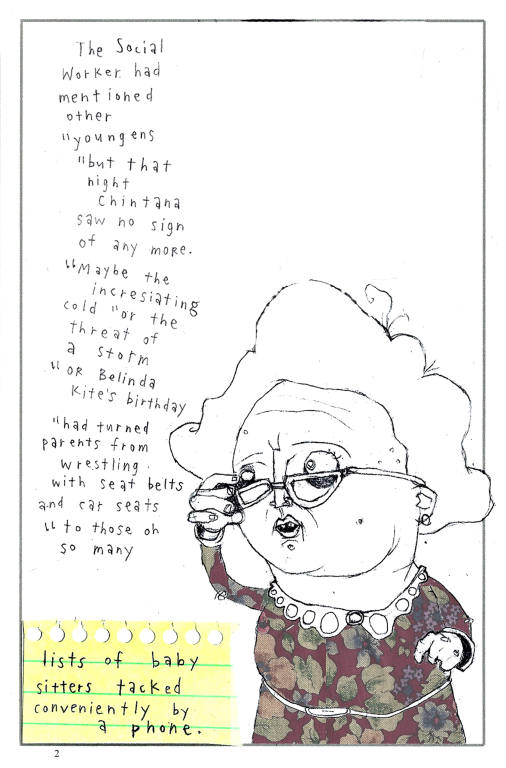 The Social
Worker had
mentioned
other
"youngens
"but that
night
Chintana
saw no sign
of any more.
"Maybe the
incresiating
cold "or the
threat of
a storm
"OR Belinda
Kite's birthday
"had turned
parents from
wrestling.
with seat belts
and car seats
" to those oh
so many
lists of baby
sitters tacked
conveniently by
a phone.
2